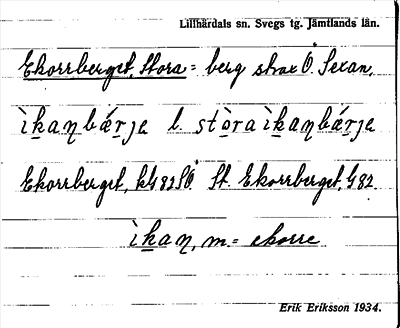 Lillhärdals sn. Svegs tg. Jämtlands län.
Ekorrberget, Stora = berg strax Ö. Sexan.
ìkaŋbǽrje l. stòraìkaŋbǽrje
Ekorrberget, St. Ekorrberget, 482
ìkaŋ, m. = ekorre
Erik Eriksson 1934.